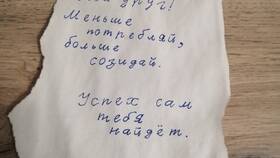 друг!
Меньше
потребляй,
больше
созидай.
Успех сам
тебя
найдёт.